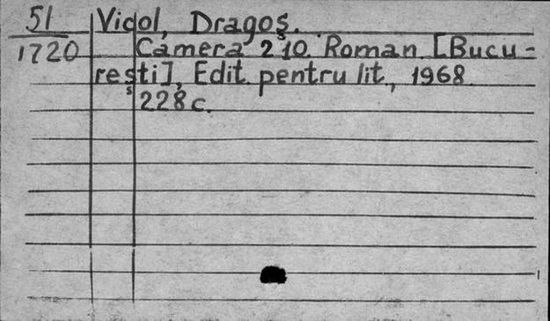 51
1720
Vicol, Dragoş.
Camera 210. Roman. [Bucu-
reşti], Edit. pentru lit., 1968.
228 c.